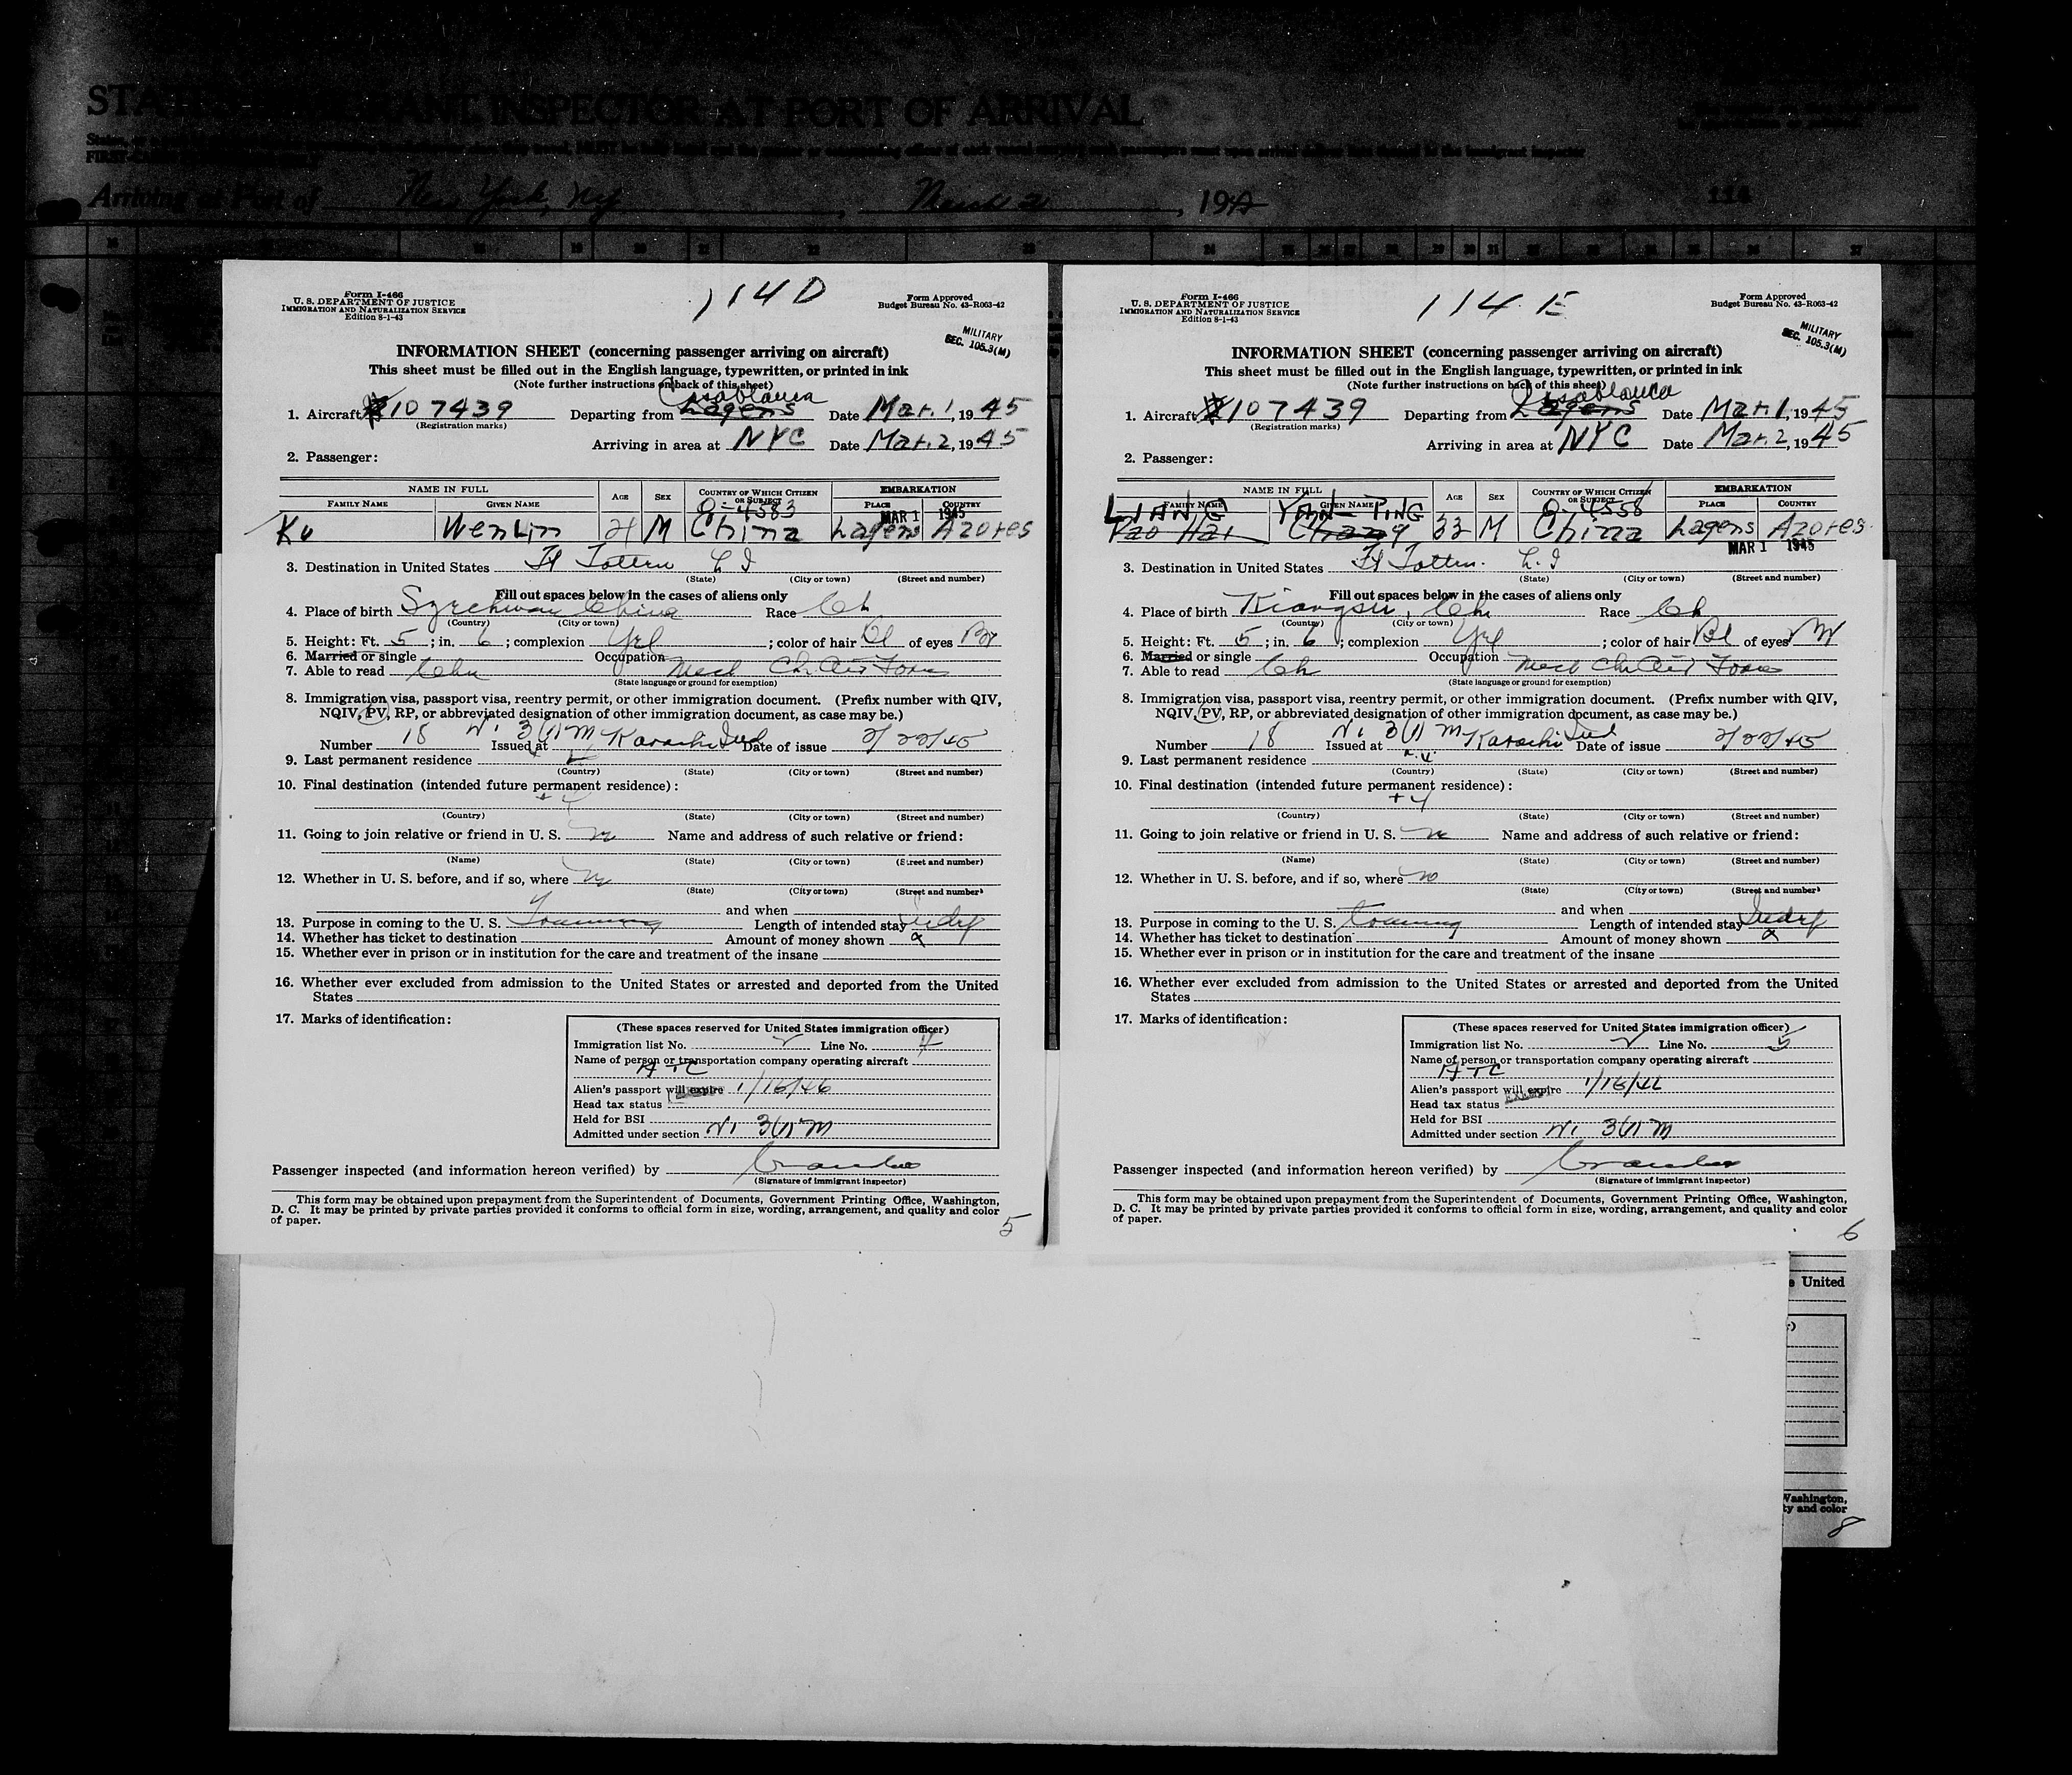 INSPECTOR AT PORT OF ARRIVAL
Arriving at Port of New York, NY, March 2, 19
114
Form I-466
U. S. DEPARTMENT OF JUSTICE
IMMIGRATION AND NATURALIZATION SERVICE
Edition 8-1-43
114 D
Form Approved
Budget Bureau No. 43-R063-42
MILITARY
SEC. 105.3(M)
INFORMATION SHEET (concerning passenger arriving on aircraft)
This sheet must be filled out in the English language, typewritten, or printed in ink
(Note further instructions on back of this sheet)
Casablanca
1. Aircraft 107439 Departing from Lagens Date Mar. 1, 1945
(Registration marks)
Arriving in area at NYC Date Mar. 2, 1945
2. Passenger:
NAME IN FULL AGE SEX COUNTRY OF WHICH CITIZEN OR SUBJECT EMBARKATION
FAMILY NAME GIVEN NAME PLACE COUNTRY
0-4583 MAR 1 1945
Ku Wenlin 21 M China Lagens Azores
3. Destination in United States Ft Totten L I
(State) (City or town) (Street and number)
Fill out spaces below in the cases of aliens only
4. Place of birth Szechwan China Race Ch
(Country) (City or town)
5. Height: Ft. 5; in. 6; complexion Yel; color of hair Bl of eyes Br
6. Married or single Occupation Mech Ch Air Force
7. Able to read Chn
(State language or ground for exemption)
8. Immigration visa, passport visa, reentry permit, or other immigration document. (Prefix number with QIV,
NQIV, PV, RP, or abbreviated designation of other immigration document, as case may be.)
Number 18 3(1) M Issued at Karachi Ind Date of issue 2/22/45
9. Last permanent residence
(Country) (State) (City or town) (Street and number)
10. Final destination (intended future permanent residence):
(Country) (State) (City or town) (Street and number)
11. Going to join relative or friend in U. S. no Name and address of such relative or friend:
(Name) (State) (City or town) (Street and number)
12. Whether in U. S. before, and if so, where no
(State) (City or town) (Street and number)
and when
13. Purpose in coming to the U. S. Training Length of intended stay Indef
14. Whether has ticket to destination Amount of money shown
15. Whether ever in prison or in institution for the care and treatment of the insane
16. Whether ever excluded from admission to the United States or arrested and deported from the United
States
17. Marks of identification:
(These spaces reserved for United States immigration officer)
Immigration list No. Line No. 4
Name of person or transportation company operating aircraft
ATC
Alien's passport will expire 1/16/46
Head tax status
Held for BSI
Admitted under section 3(1) M
Passenger inspected (and information hereon verified) by
(Signature of immigrant inspector)
This form may be obtained upon prepayment from the Superintendent of Documents, Government Printing Office, Washington,
D. C. It may be printed by private parties provided it conforms to official form in size, wording, arrangement, and quality and color
of paper.
5
Form I-466
U. S. DEPARTMENT OF JUSTICE
IMMIGRATION AND NATURALIZATION SERVICE
Edition 8-1-43
114 E
Form Approved
Budget Bureau No. 43-R063-42
MILITARY
SEC. 105.3(M)
INFORMATION SHEET (concerning passenger arriving on aircraft)
This sheet must be filled out in the English language, typewritten, or printed in ink
(Note further instructions on back of this sheet)
Casablanca
1. Aircraft 107439 Departing from Lagens Date Mar. 1, 1945
(Registration marks)
Arriving in area at NYC Date Mar. 2, 1945
2. Passenger:
NAME IN FULL AGE SEX COUNTRY OF WHICH CITIZEN OR SUBJECT EMBARKATION
FAMILY NAME GIVEN NAME PLACE COUNTRY
LIANG YAN-PING 0-4558
Pao Hai Chang 33 M China Lagens Azores
MAR 1 1945
3. Destination in United States Ft Totten L. I
(State) (City or town) (Street and number)
Fill out spaces below in the cases of aliens only
4. Place of birth Kiangsu, Ch Race Ch
(Country) (City or town)
5. Height: Ft. 5; in. 6; complexion Yel; color of hair Bl of eyes Br
6. Married or single Occupation Mech Ch Air Force
7. Able to read Ch
(State language or ground for exemption)
8. Immigration visa, passport visa, reentry permit, or other immigration document. (Prefix number with QIV,
NQIV, PV, RP, or abbreviated designation of other immigration document, as case may be.)
Number 18 3(1) M Issued at Karachi Ind Date of issue 2/22/45
9. Last permanent residence
(Country) (State) (City or town) (Street and number)
10. Final destination (intended future permanent residence):
(Country) (State) (City or town) (Street and number)
11. Going to join relative or friend in U. S. no Name and address of such relative or friend:
(Name) (State) (City or town) (Street and number)
12. Whether in U. S. before, and if so, where no
(State) (City or town) (Street and number)
and when
13. Purpose in coming to the U. S. training Length of intended stay Indef
14. Whether has ticket to destination Amount of money shown
15. Whether ever in prison or in institution for the care and treatment of the insane
16. Whether ever excluded from admission to the United States or arrested and deported from the United
States
17. Marks of identification:
(These spaces reserved for United States immigration officer)
Immigration list No. Line No. 5
Name of person or transportation company operating aircraft
ATC
Alien's passport will expire 1/16/46
Head tax status
Held for BSI
Admitted under section 3(1) M
Passenger inspected (and information hereon verified) by
(Signature of immigrant inspector)
This form may be obtained upon prepayment from the Superintendent of Documents, Government Printing Office, Washington,
D. C. It may be printed by private parties provided it conforms to official form in size, wording, arrangement, and quality and color
of paper.
6
United
Washington,
ty and color
8